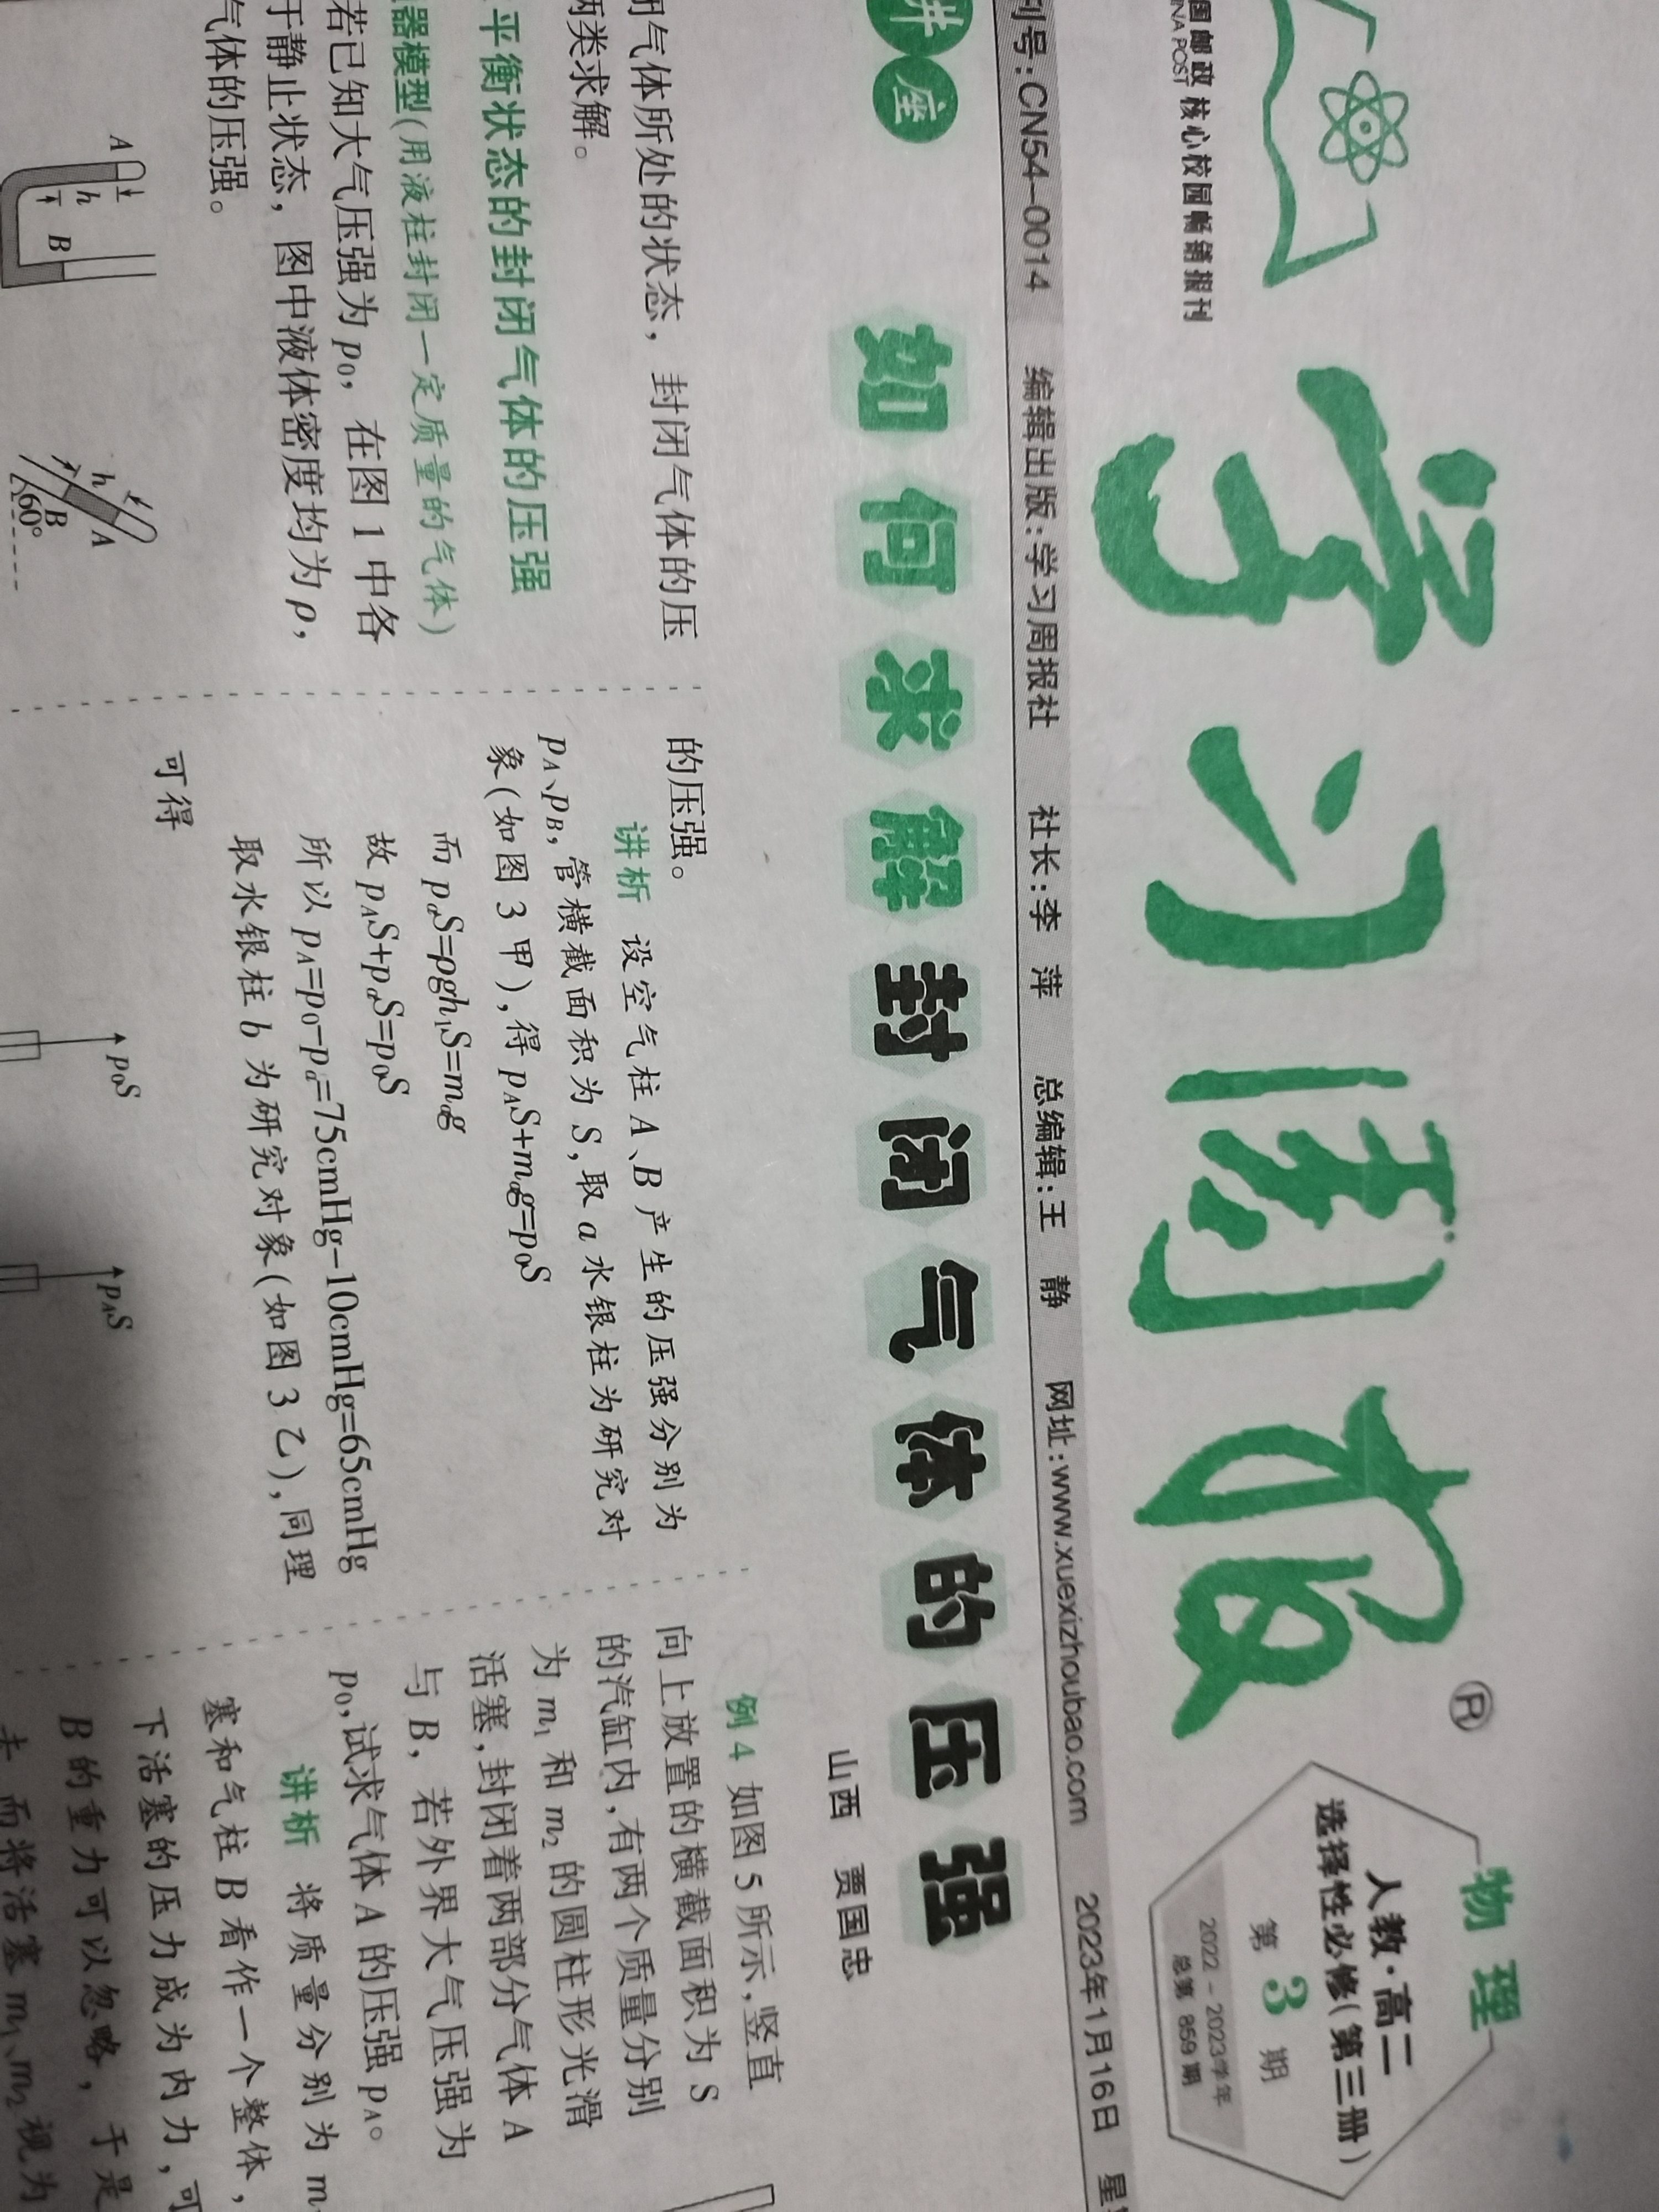 国邮政 核心校园畅销报刊
INA POST
学习周报
®
物理
人教·高二
选择性必修(第三册)
第 3 期
2022-2023学年
总第 859 期
刊号:CN54-0014 编辑出版:学习周报社 社长:李 萍 总编辑:王 静 网址:www.xuexizhoubao.com 2023年1月16日 星
讲座
如何求解封闭气体的压强
山西 贾国忠
闭气体所处的状态，封闭气体的压
两类求解。
平衡状态的封闭气体的压强
器模型(用液柱封闭一定质量的气体)
若已知大气压强为 p₀，在图 1 中各
于静止状态，图中液体密度均为 ρ，
气体的压强。
A
h
B
h
A
B
60°
的压强。
讲析 设空气柱 A、B 产生的压强分别为
p_A、p_B，管横截面积为 S，取 a 水银柱为研究对
象(如图 3 甲)，得 p_AS+m_ag=p₀S
而 p_aS=ρgh₁S=m_ag
故 p_AS+p_aS=p₀S
所以 p_A=p₀-p_a=75cmHg-10cmHg=65cmHg
取水银柱 b 为研究对象(如图 3 乙)，同理
可得
p₀S
p_AS
例 4 如图 5 所示，竖直
向上放置的横截面积为 S
的汽缸内，有两个质量分别
为 m₁ 和 m₂ 的圆柱形光滑
活塞，封闭着两部分气体 A
与 B，若外界大气压强为
p₀，试求气体 A 的压强 p_A。
讲析 将质量分别为 m
塞和气柱 B 看作一个整体，
下活塞的压力成为内力，可
B 的重力可以忽略，于是
去，而将活塞 m₁、m₂ 视为